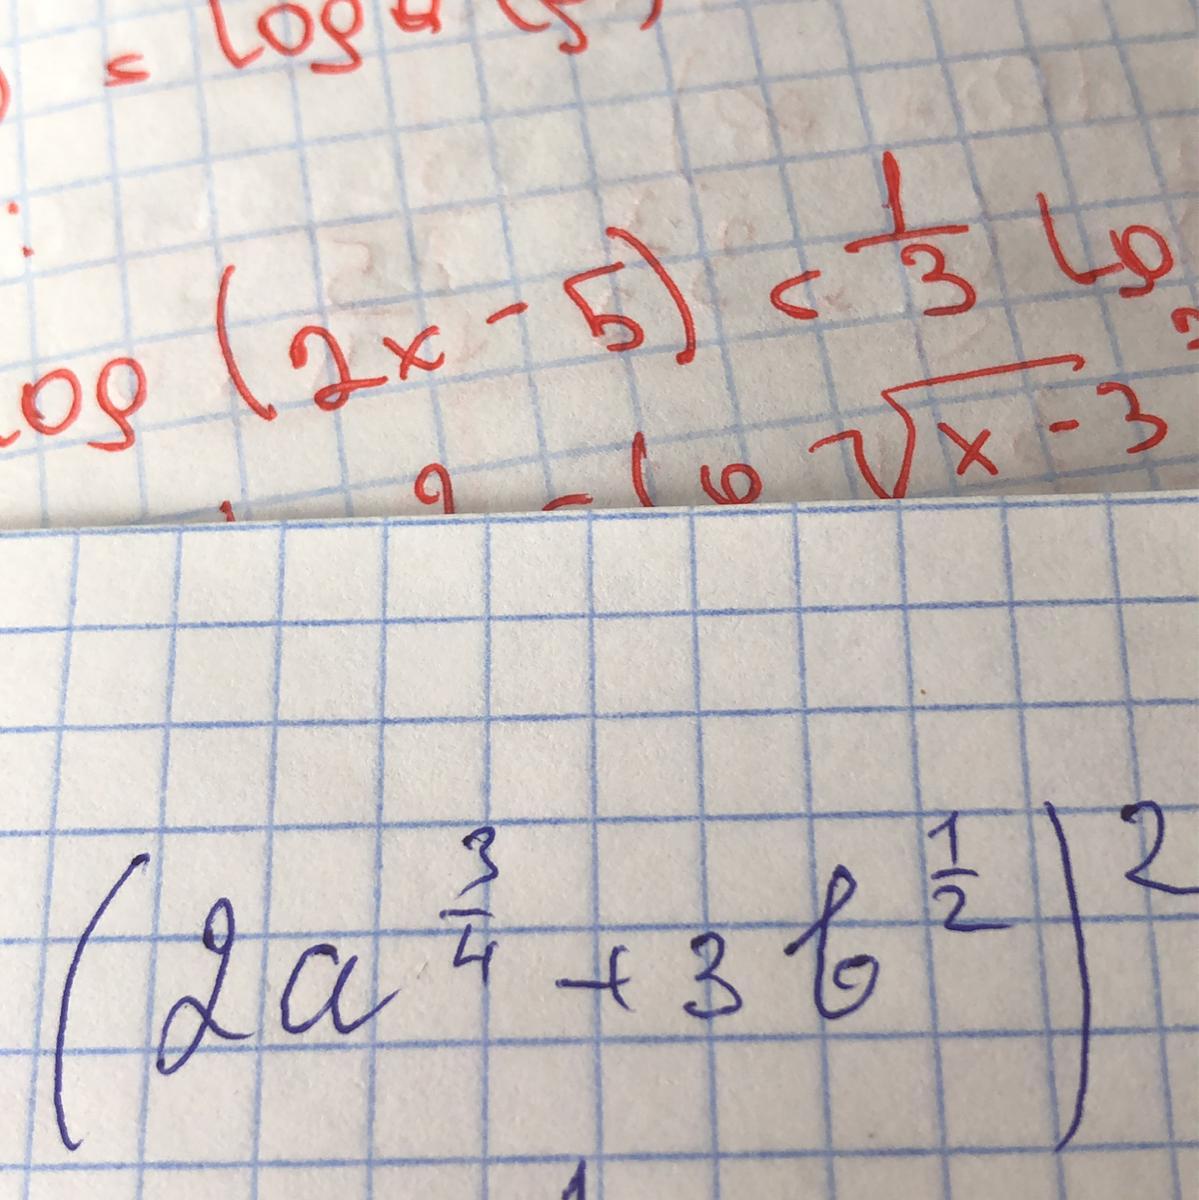 = log
log (2x - 5) < 1/3 lo
√x - 3
(2a^(3/4) + 3b^(1/2))^2